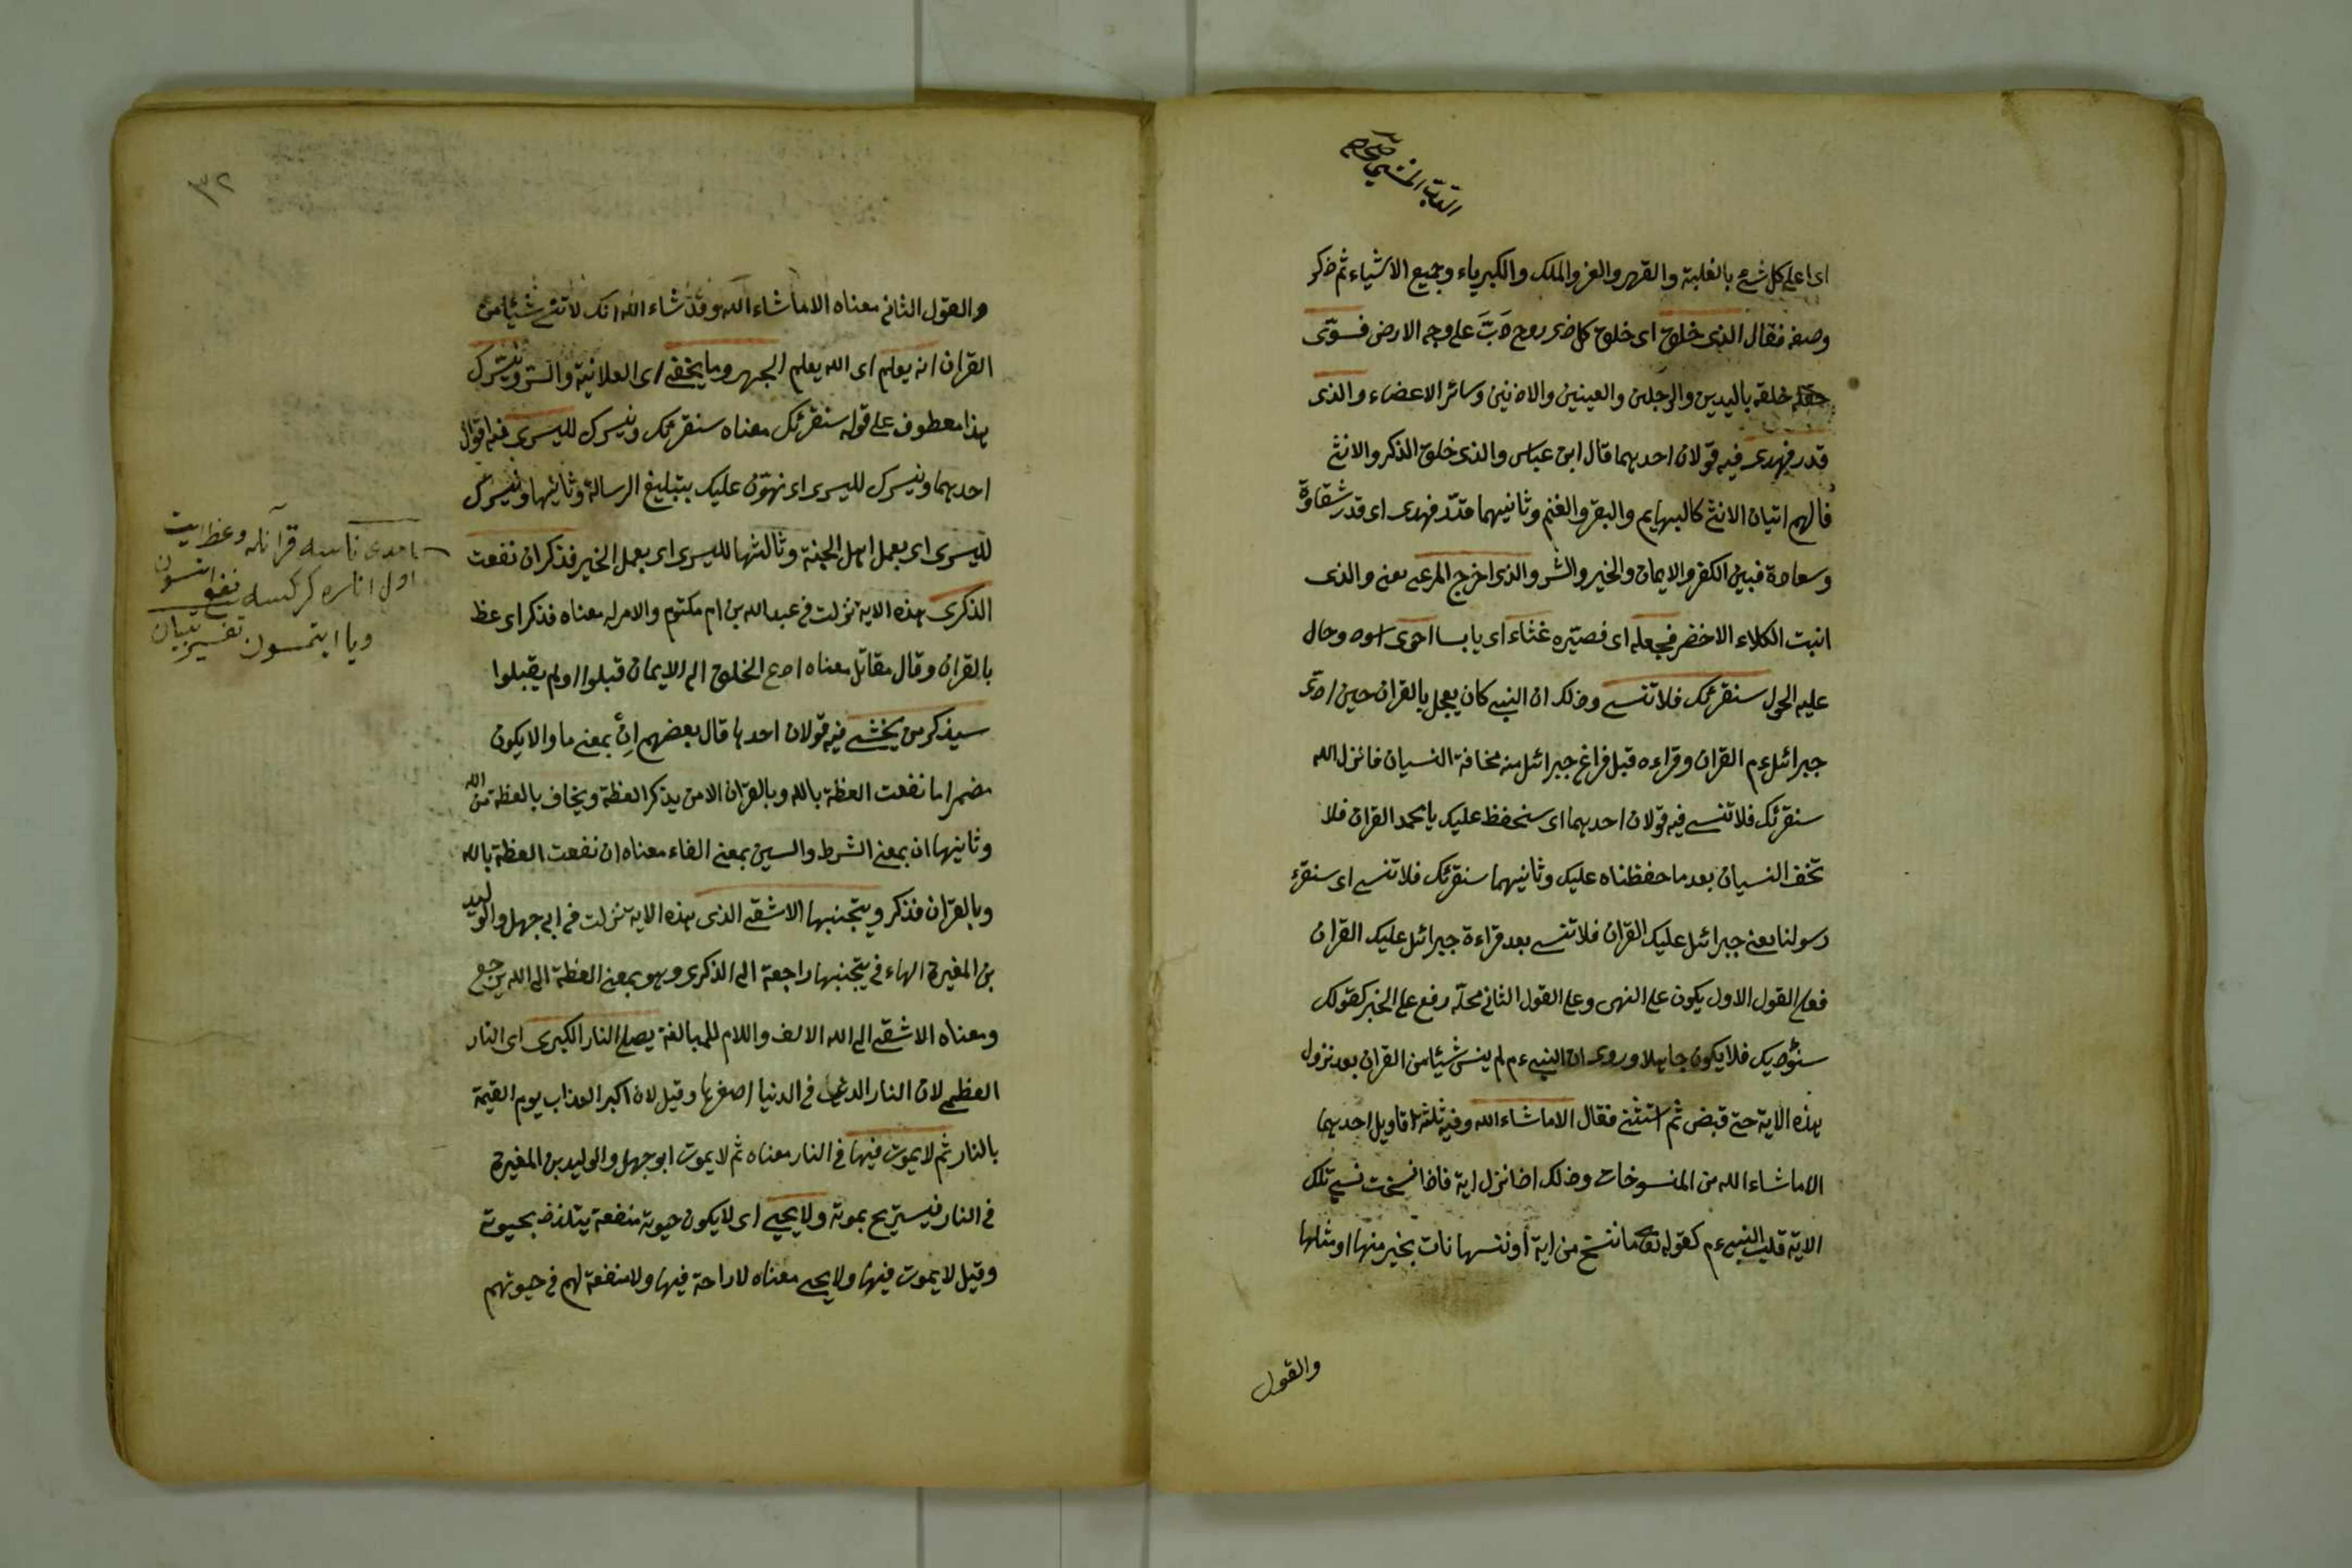 اى اعلى كل شئ بالغلبة والقهر والعز والملك والكبرياء وجميع الاشياء ثم ذكر
وصفه فقال الذى خلق اى خلق كل ذى روح دَبَّ على وجه الارض فسوّى
خلقه باليدين والرجلين والعينين والاذنين وسائر الاعضاء والذى
قدر فهدى فيه قولان احديهما قال ابن عباس والذى خلق الذكر والانثى
فالهم اتيان الانثى كالبهايم والبقر والغنم وثانيهما قدّر فهدى اى قدر شقاوة
وسعادة فبين الكفر والايمان والخير والشر والذى اخرج المرعى يعنى والذى
انبت الكلاء الاخضر فجعله اى فصيّره غثاء اى يابسا احوى اسود وحال
عليه الحول سنقرئك فلا تنسى وذلك ان النبى كان يعجل بالقران حين ادّى
جبرائيل ءم القران وقراءه قبل فراغ جبرائيل منه مخافة النسيان فانزل الله
سنقرئك فلا تنسى فيه قولان احديهما اى سنحفظ عليك يا محمد القران فلا
تخف النسيان بعد ما حفظناه عليك وثانيهما سنقرئك فلا تنسى اى سنقرء
رسولنا يعنى جبرائيل عليك القران فلا تنسى بعد قراءة جبرائيل عليك القران
فعلى القول الاول يكون على النهى وعلى القول الثانى محلّه رفع على الخبر كقولك
فلا يكون جاهلا وروى ان النبى ءم لم ينس شيئا من القران بعد نزول
هذه الاية حتى قبض ثم استثنى فقال الا ما شاء الله وفيه ثلثة اقاويل احديهما
الا ما شاء الله من المنسوخات وذلك اذا نزل اية فاذا نسخت نسى تلك
الاية قلب النبى ءم كقوله تع ما ننسخ من اية أو ننسها نات بخير منها او مثلها
والقول
٣٢
والقول الثانى معناه الا ما شاء الله وقد شاء الله انك لا تنسى شيئا من
القران انه يعلم اى الله يعلم الجهر وما يخفى اى العلانية والسر ونيسّرك
هذا معطوف على قوله سنقرئك معناه سنقرئك ونيسرك لليسرى فيه اقوال
احديهما ونيسرك لليسرى اى نهوّن عليك بتبليغ الرسالة وثانيها ونيسرك
لليسرى اى بعمل اهل الجنة وثالثها لليسرى اى بعمل الخير فذكر ان نفعت
الذكرى هذه الاية نزلت فى عبد الله بن ام مكتوم والامر له معناه فذكر اى عظ
بالقران وقال مقاتل معناه ادع الخلق الى الايمان قبلوا او لم يقبلوا
سيذكر من يخشى فيه قولان احدها قال بعضهم اِنْ بمعنى ما والا يكون
مضمرا ما نفعت العظة بالله وبالقران الا من يذكر العظة ويخاف بالعظة من الله
وثانيها ان بمعنى الشرط والسين بمعنى الفاء معناه ان نفعت العظة بالله
وبالقران فذكر ويتجنبها الاشقى الذى هذه الاية نزلت فى ابى جهل والوليد
بن المغيرة الهاء فى يتجنبها راجعة الى الذكرى وهو بمعنى العظة الى الله يرجع
ومعناه الاشقى الى الله الالف واللام للمبالغة يصلى النار الكبرى اى النار
العظمى لان النار فى الدنيا اصغرها وقيل لان اكبر العذاب يوم القيمة
بالنار ثم لا يموت فيها فى النار معناه ثم لا يموت ابو جهل والوليد بن المغيرة
فى النار فيستريح بموته ولا يحيى اى لا يكون حيوة منفعة يتلذذ بحيوته
وقيل لا يموت فيها ولا يحيى معناه لا راحة فيها ولا منفعة لهم فى حيوتهم
تفسير تبيان